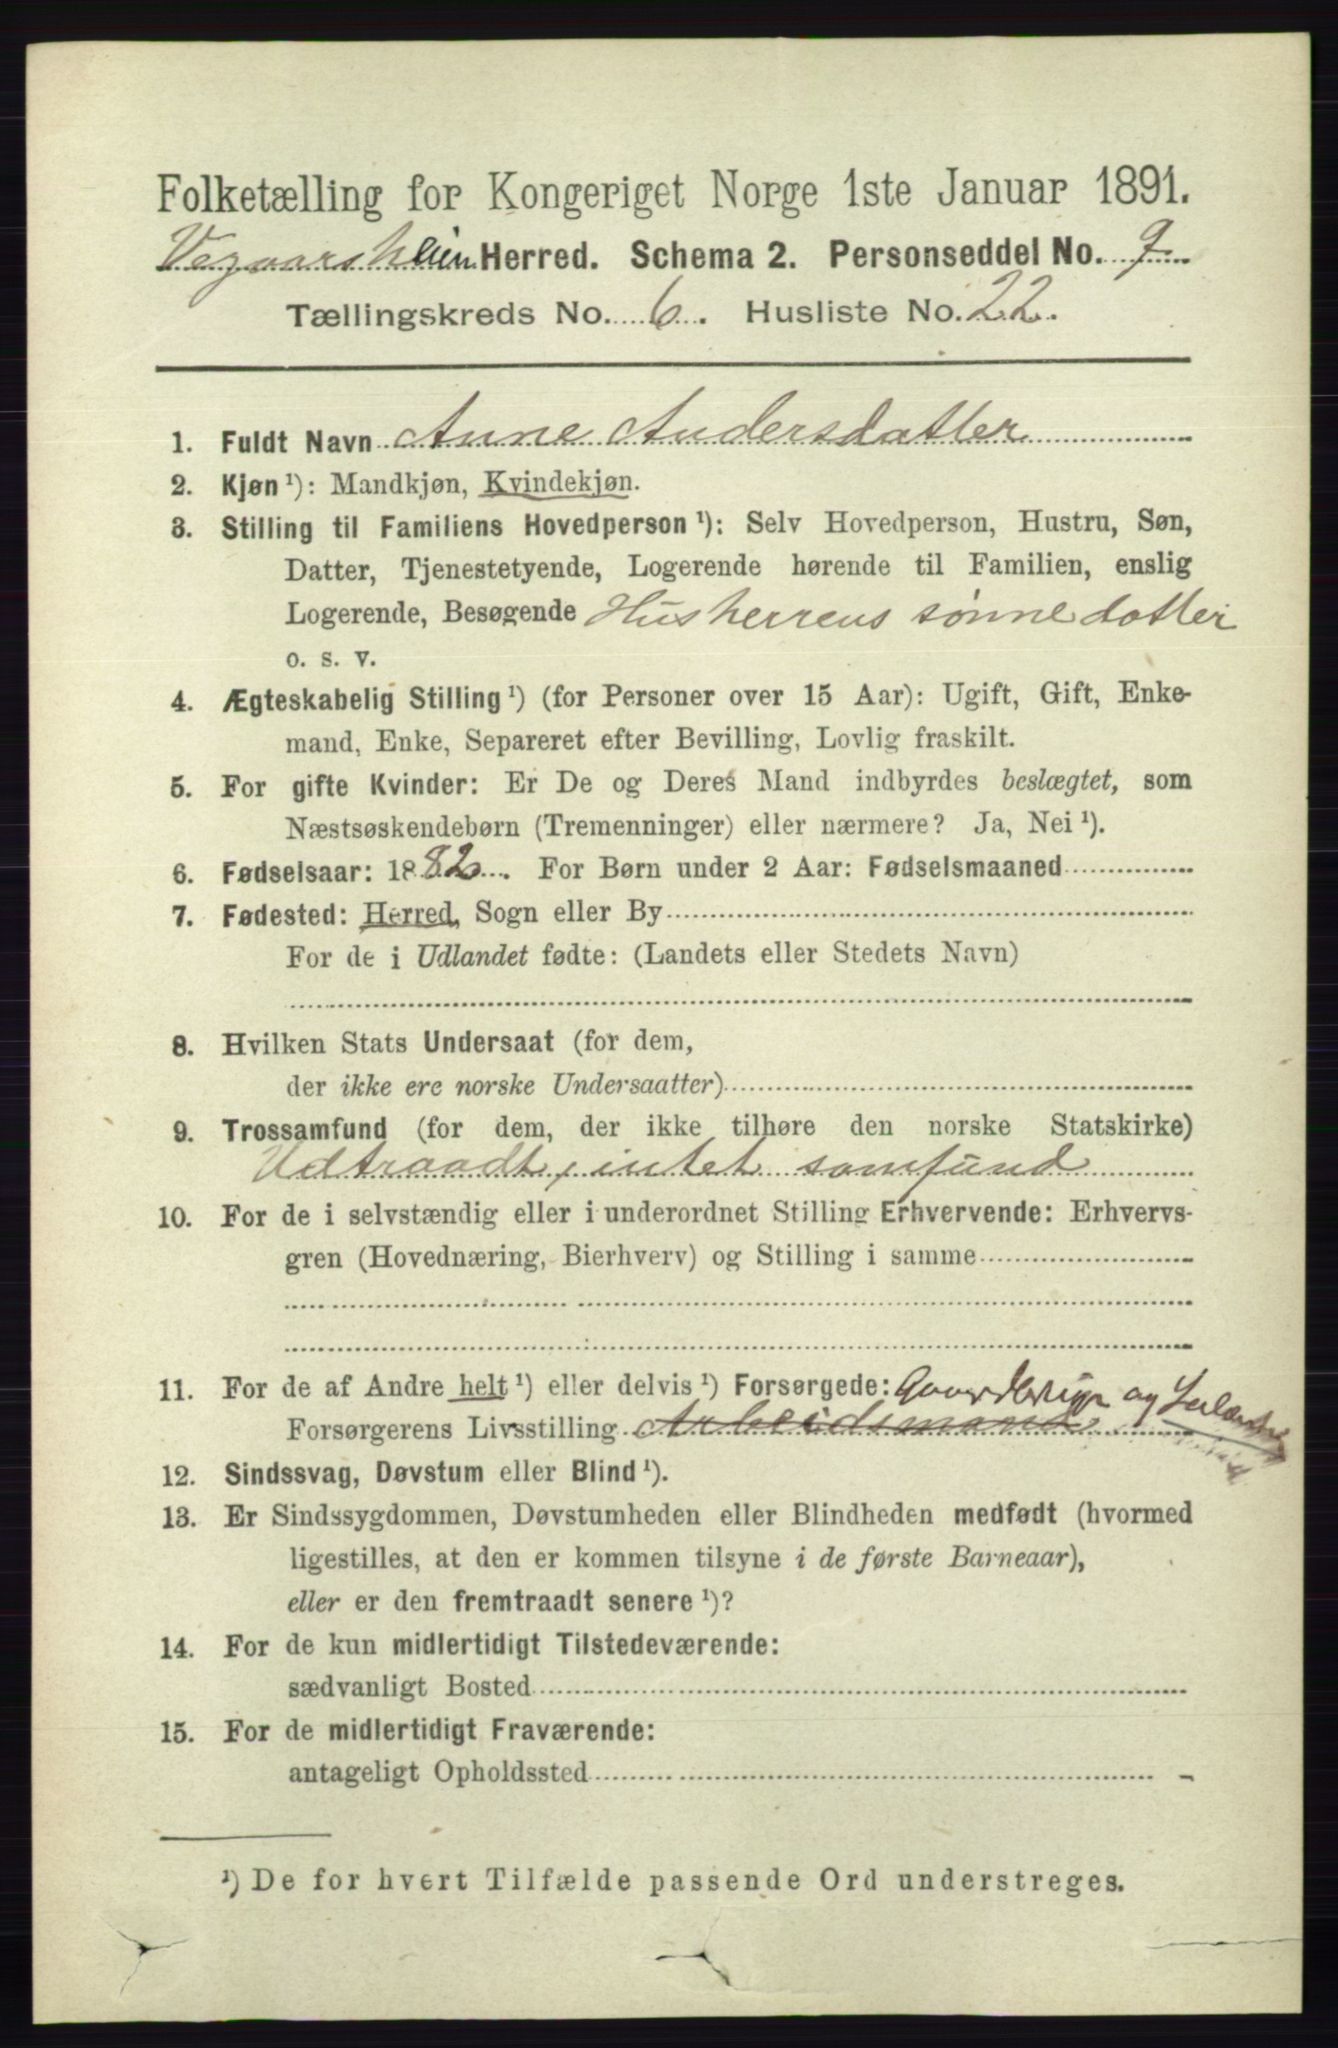 Folketælling for Kongeriget Norge 1ste Januar 1891.
Vegaarsheien Herred. Schema 2. Personseddel No. 9
Tællingskreds No. 6. Husliste No. 22.
1. Fuldt Navn Anne Andersdatter
2. Kjøn ¹): Mandkjøn, Kvindekjøn.
3. Stilling til Familiens Hovedperson ¹): Selv Hovedperson, Hustru, Søn,
Datter, Tjenestetyende, Logerende hørende til Familien, enslig
Logerende, Besøgende Husherrens sønnedatter
o. s. v.
4. Ægteskabelig Stilling ¹) (for Personer over 15 Aar): Ugift, Gift, Enke-
mand, Enke, Separeret efter Bevilling, Lovlig fraskilt.
5. For gifte Kvinder: Er De og Deres Mand indbyrdes beslægtet, som
Næstsøskendebørn (Tremenninger) eller nærmere? Ja, Nei ¹).
6. Fødselsaar: 1882. For Børn under 2 Aar: Fødselsmaaned
7. Fødested: Herred, Sogn eller By
For de i Udlandet fødte: (Landets eller Stedets Navn)
8. Hvilken Stats Undersaat (for dem,
der ikke ere norske Undersaatter)
9. Trossamfund (for dem, der ikke tilhøre den norske Statskirke)
Udtraadt, intet samfund
10. For de i selvstændig eller i underordnet Stilling Erhvervende: Erhvervs-
gren (Hovednæring, Bierhverv) og Stilling i samme
11. For de af Andre helt ¹) eller delvis ¹) Forsørgede: og
Forsørgerens Livsstilling Arbeidsmand
12. Sindssvag, Døvstum eller Blind ¹).
13. Er Sindssygdommen, Døvstumheden eller Blindheden medfødt (hvormed
ligestilles, at den er kommen tilsyne i de første Barneaar),
eller er den fremtraadt senere ¹)?
14. For de kun midlertidigt Tilstedeværende:
sædvanligt Bosted
15. For de midlertidigt Fraværende:
antageligt Opholdssted
¹) De for hvert Tilfælde passende Ord understreges.